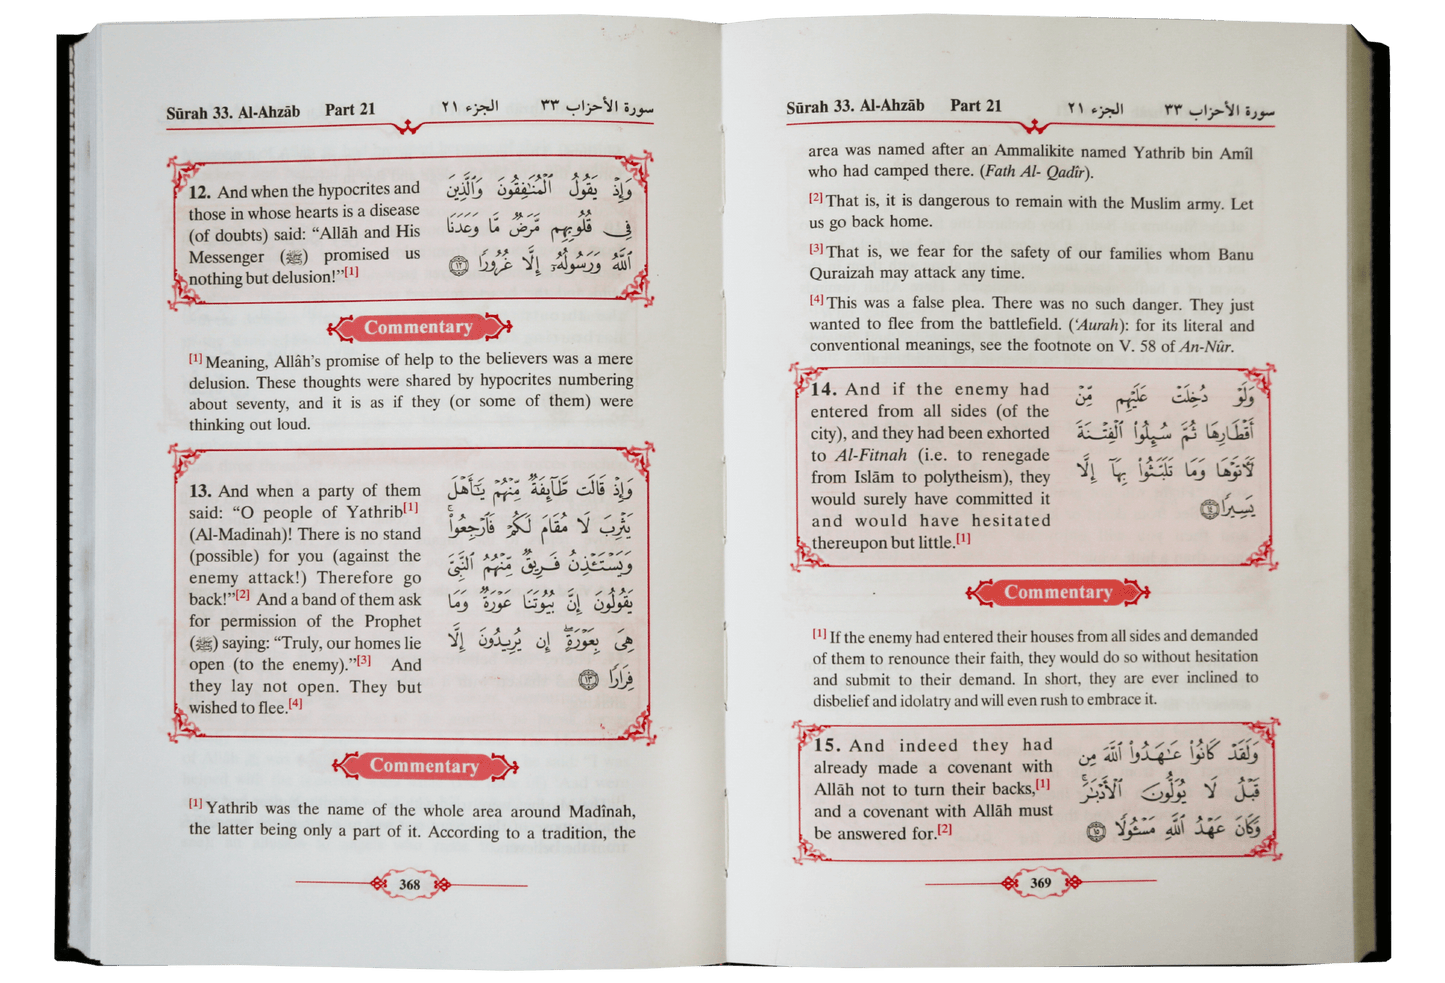 Sūrah 33. Al-Ahzāb Part 21 الجزء ٢١ سورة الأحزاب ٣٣
12. And when the hypocrites and
those in whose hearts is a disease
(of doubts) said: “Allāh and His
Messenger (ﷺ) promised us
nothing but delusion!”[1]
وَإِذْ يَقُولُ الْمُنَافِقُونَ وَالَّذِينَ
فِي قُلُوبِهِم مَّرَضٌ مَّا وَعَدَنَا
اللَّهُ وَرَسُولُهُ إِلَّا غُرُورًا ١٢
Commentary
[1] Meaning, Allâh’s promise of help to the believers was a mere
delusion. These thoughts were shared by hypocrites numbering
about seventy, and it is as if they (or some of them) were
thinking out loud.
13. And when a party of them
said: “O people of Yathrib[1]
(Al-Madinah)! There is no stand
(possible) for you (against the
enemy attack!) Therefore go
back!”[2] And a band of them ask
for permission of the Prophet
(ﷺ) saying: “Truly, our homes lie
open (to the enemy).”[3] And
they lay not open. They but
wished to flee.[4]
وَإِذْ قَالَت طَّائِفَةٌ مِّنْهُمْ يَا أَهْلَ
يَثْرِبَ لَا مُقَامَ لَكُمْ فَارْجِعُوا ۚ
وَيَسْتَئْذِنُ فَرِيقٌ مِّنْهُمُ النَّبِيَّ
يَقُولُونَ إِنَّ بُيُوتَنَا عَوْرَةٌ وَمَا
هِيَ بِعَوْرَةٍ ۖ إِن يُرِيدُونَ إِلَّا
فِرَارًا ١٣
Commentary
[1] Yathrib was the name of the whole area around Madînah,
the latter being only a part of it. According to a tradition, the
368
Sūrah 33. Al-Ahzāb Part 21 الجزء ٢١ سورة الأحزاب ٣٣
area was named after an Ammalikite named Yathrib bin Amîl
who had camped there. (Fath Al- Qadîr).
[2] That is, it is dangerous to remain with the Muslim army. Let
us go back home.
[3] That is, we fear for the safety of our families whom Banu
Quraizah may attack any time.
[4] This was a false plea. There was no such danger. They just
wanted to flee from the battlefield. (‘Aurah): for its literal and
conventional meanings, see the footnote on V. 58 of An-Nûr.
14. And if the enemy had
entered from all sides (of the
city), and they had been exhorted
to Al-Fitnah (i.e. to renegade
from Islām to polytheism), they
would surely have committed it
and would have hesitated
thereupon but little.[1]
وَلَوْ دُخِلَتْ عَلَيْهِم مِّنْ
أَقْطَارِهَا ثُمَّ سُئِلُوا الْفِتْنَةَ
لَآتَوْهَا وَمَا تَلَبَّثُوا بِهَا إِلَّا
يَسِيرًا ١٤
Commentary
[1] If the enemy had entered their houses from all sides and demanded
of them to renounce their faith, they would do so without hesitation
and submit to their demand. In short, they are ever inclined to
disbelief and idolatry and will even rush to embrace it.
15. And indeed they had
already made a covenant with
Allāh not to turn their backs,[1]
and a covenant with Allāh must
be answered for.[2]
وَلَقَدْ كَانُوا عَاهَدُوا اللَّهَ مِن
قَبْلُ لَا يُوَلُّونَ الْأَدْبَارَ ۚ
وَكَانَ عَهْدُ اللَّهِ مَسْئُولًا ١٥
369